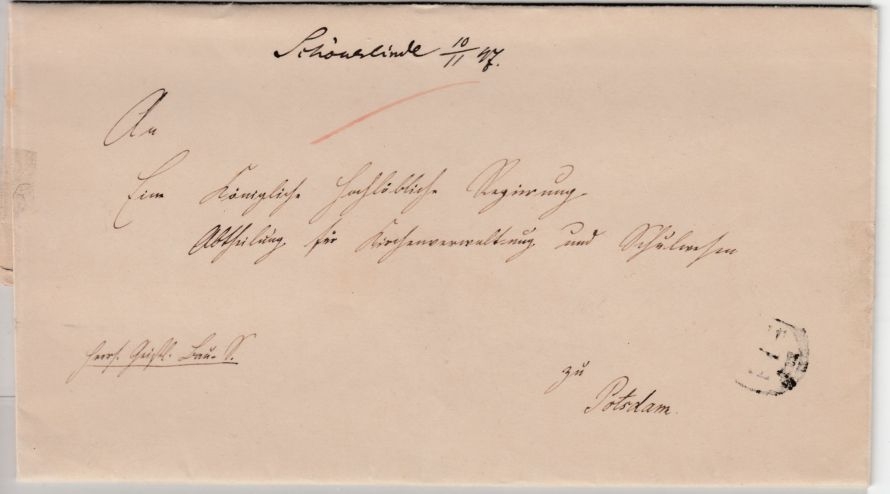 Schönerlinde 10/11 47.
An
Eine Königliche Hochlöbliche Regierung
Abtheilung für Kirchenverwaltung und Schulwesen
Herrs. Geistl. Bau. S.
zu
Potsdam.